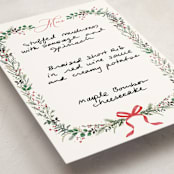 M
Stuffed mushrooms
with sausage and
spinach
Braised short rib
in red wine sauce
and creamy potatoes
Maple Bourbon
Cheesecake